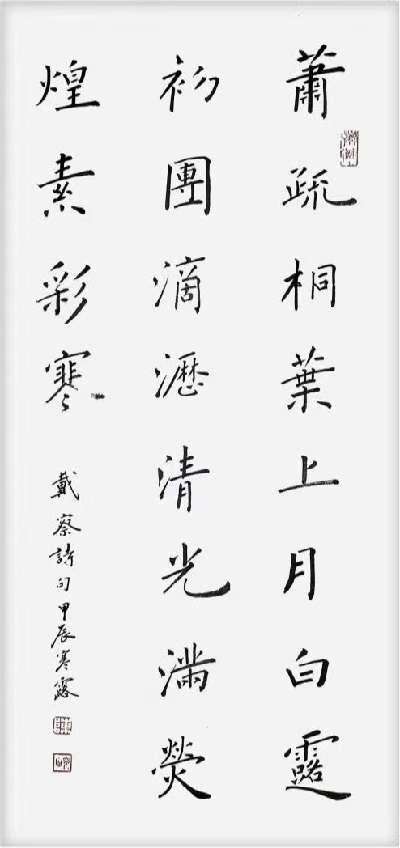 蕭疏桐葉上月白露
初團滴瀝清光滿熒
煌素彩寒
戴察詩句甲辰寒露